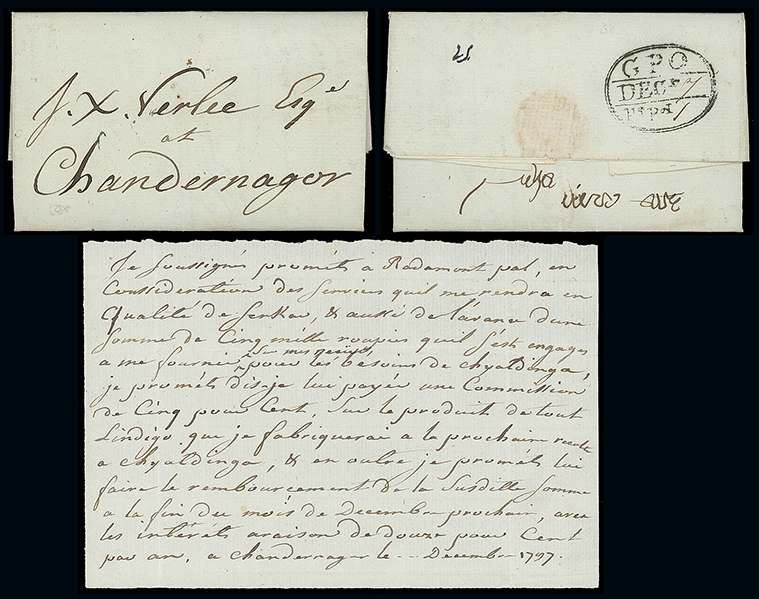 f. X. Verlee Esqe
at
Chandernagor
GPO
DEC 7
Pdpd
Je soussignés promèts à Radamont pal, en
Considération des Services quil me rendra en
Qualité de Serkar, & aussi de l'avance dune
somme de Cinq mille roupies quil s'est engagés
a me fournir pour les besoins de Chyaldinga,
je promèts dis-je lui payer une Commission
de Cinq pour Cent, Sur le produit de tout
Lindigo que je fabriquerai a la prochaine recolte
a Chyaldinga, & en outre je promèts lui
faire le remboursement de la Susditte Somme
a la fin du mois de Decembre prochain, avec
les intérêts araison de douze pour Cent
par an, a Chandernagor le -- Decembre 1797.